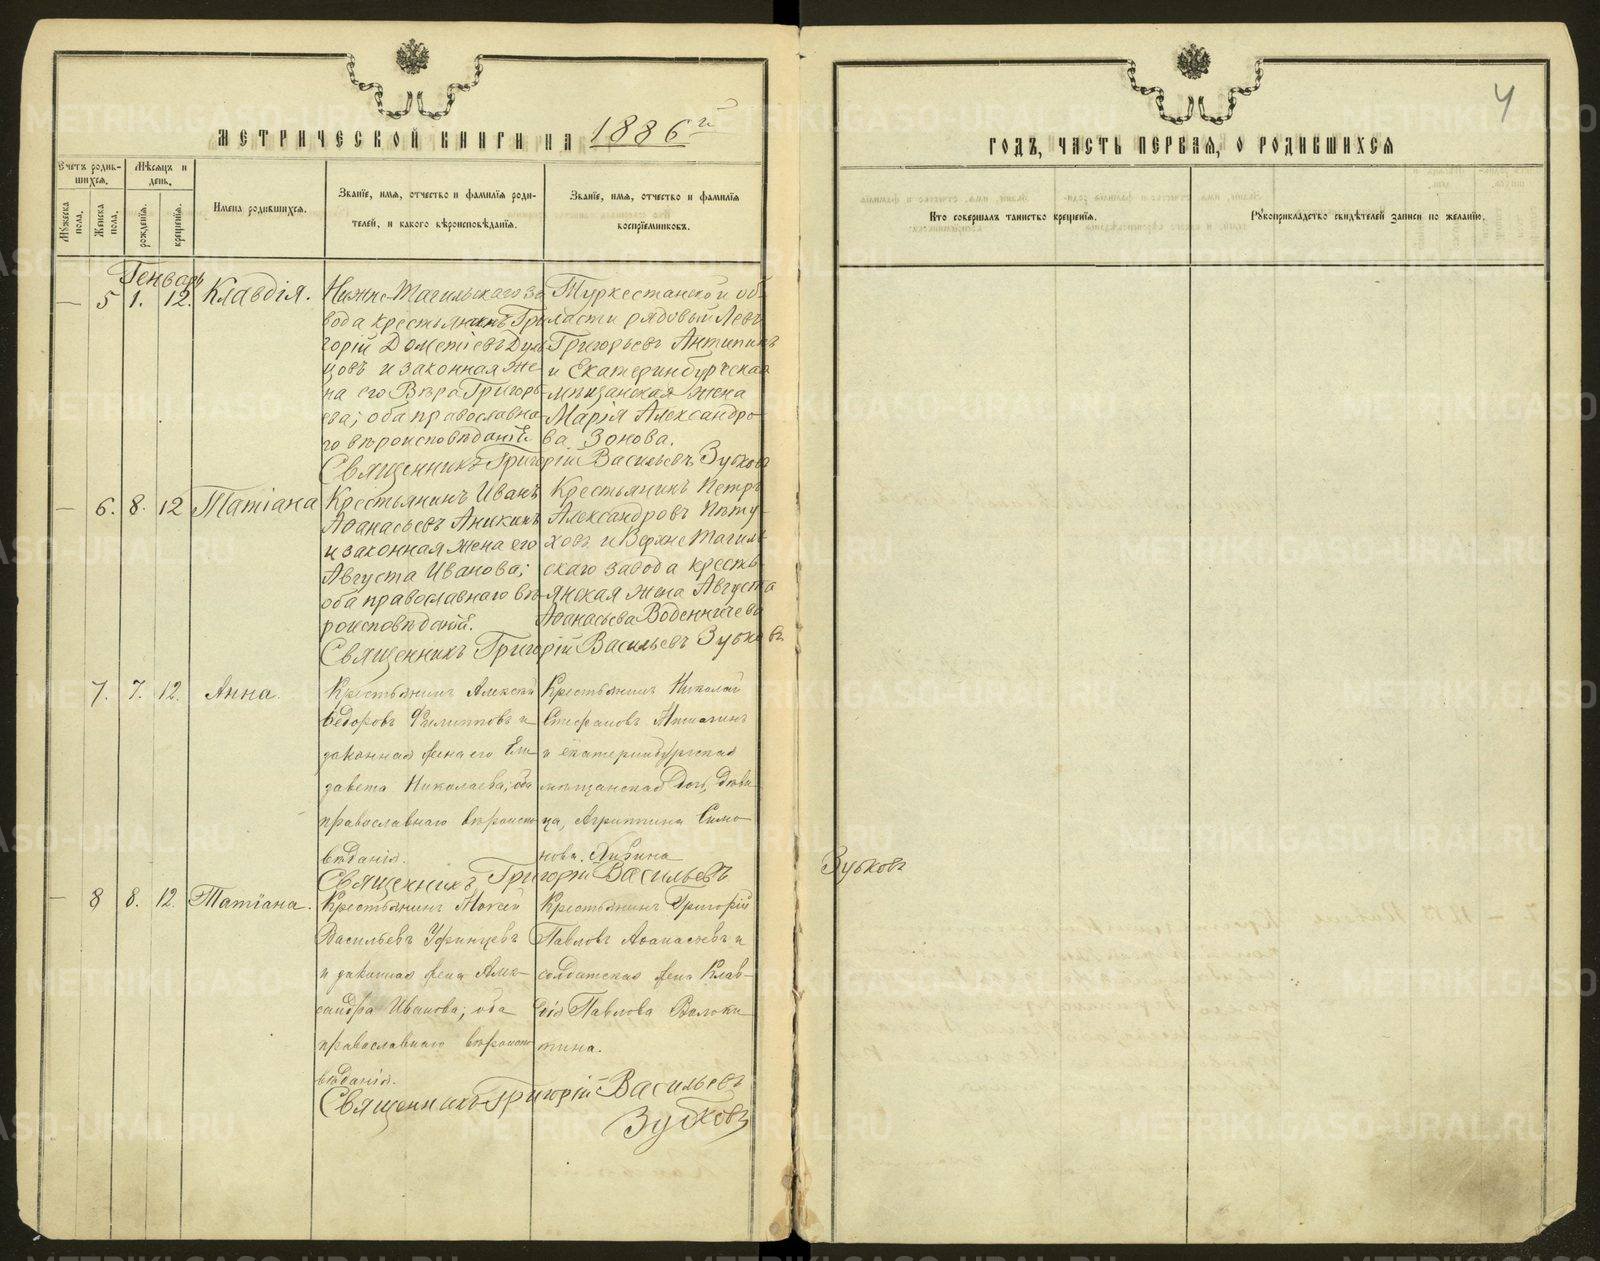 МЕТРИЧЕСКОЙ КНИГИ НА 1886 й
ГОДЪ, ЧАСТЬ ПЕРВАЯ, О РОДИВШИХСЯ
4
Счетъ родив-
шихся.
Мужеска пола.
Женска пола.
Мѣсяцъ и
день.
рожденія.
крещенія.
Имена родившихся.
Званіе, имя, отчество и фамилія роди-
телей, и какого вѣроисповѣданія.
Званіе, имя, отчество и фамилія
воспріемниковъ.
Кто совершалъ таинство крещенія.
Рукоприкладство свидѣтелей записи по желанію.
Генварь
— 5 1. 12. Клавдія.
Нижне-Тагильскаго за-
вода крестьянинъ Гри-
горій Дометіевъ
цовъ и законная же-
на его Вѣра Григорь-
ева; оба православна-
го вѣроисповѣданія.
Туркестанской об-
ласти рядовый Левъ
Григорьевъ Антипинъ
и Екатеринбургская
мѣщанская жена
Марія Александро-
ва Зонова.
Священникъ Григорій Васильевъ Зубковъ
— 6. 8. 12 Татіана
Крестьянинъ Иванъ
Аѳанасьевъ Аникинъ
и законная жена его
Августа Иванова;
оба православнаго вѣ-
роисповѣданія.
Крестьянинъ Петръ
Александровъ Пѣту-
ховъ и Верхне Тагиль-
скаго завода кресть-
янская жена Августа
Аѳанасьева Воденничева
Священникъ Григорій Васильевъ Зубковъ
7. 7. 12. Анна.
Крестьянинъ Алексѣй
Ѳедоровъ Филипповъ и
законная жена его Ели-
завета Николаева; оба
православнаго вѣроиспо-
вѣданія.
Крестьянинъ Николай
Стефановъ
и Екатеринбургская
мѣщанская дочь, дѣви-
ца, Агриппина Симо-
нова
Священникъ Григорій Васильевъ
Зубковъ
— 8 8. 12. Татіана.
Крестьянинъ Моисей
Васильевъ Уфинцевъ
и законная жена Алек-
сандра Иванова; оба
православнаго вѣроиспо-
вѣданія.
Крестьянинъ Григорій
Павловъ Аѳанасьевъ и
солдатская жена Клав-
дія Павлова Волоки-
тина.
Священникъ Григорій Васильевъ
Зубковъ
METRIKI.GASO-URAL.RU